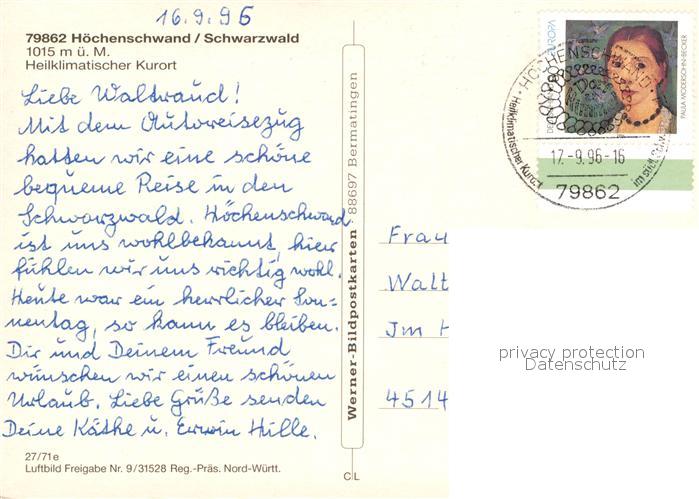 16.9.96
79862 Höchenschwand / Schwarzwald
1015 m ü. M.
Heilklimatischer Kurort
Liebe Waltraud!
Mit dem Autoreisezug
hatten wir eine schöne
bequeme Reise in den
Schwarzwald. Höchenschwand
ist uns wohlbekannt, hier
fühlen wir uns richtig wohl.
Heute war ein herrlicher Son-
nentag, so kann es bleiben.
Dir und Deinem Freund
wünschen wir einen schönen
Urlaub. Liebe Grüße senden
Deine Käthe u. Erwin Hille.
27/71e
Luftbild Freigabe Nr. 9/31528 Reg.-Präs. Nord-Württ.
Werner-Bildpostkarten · 88697 Bermatingen
C L
EUROPA
PAULA MODERSOHN-BECKER
HÖCHENSCHWAND
Heilklimatischer Kurort
17.-9.96-16
79862
Frau
Walt
Im H
4514
privacy protection
Datenschutz